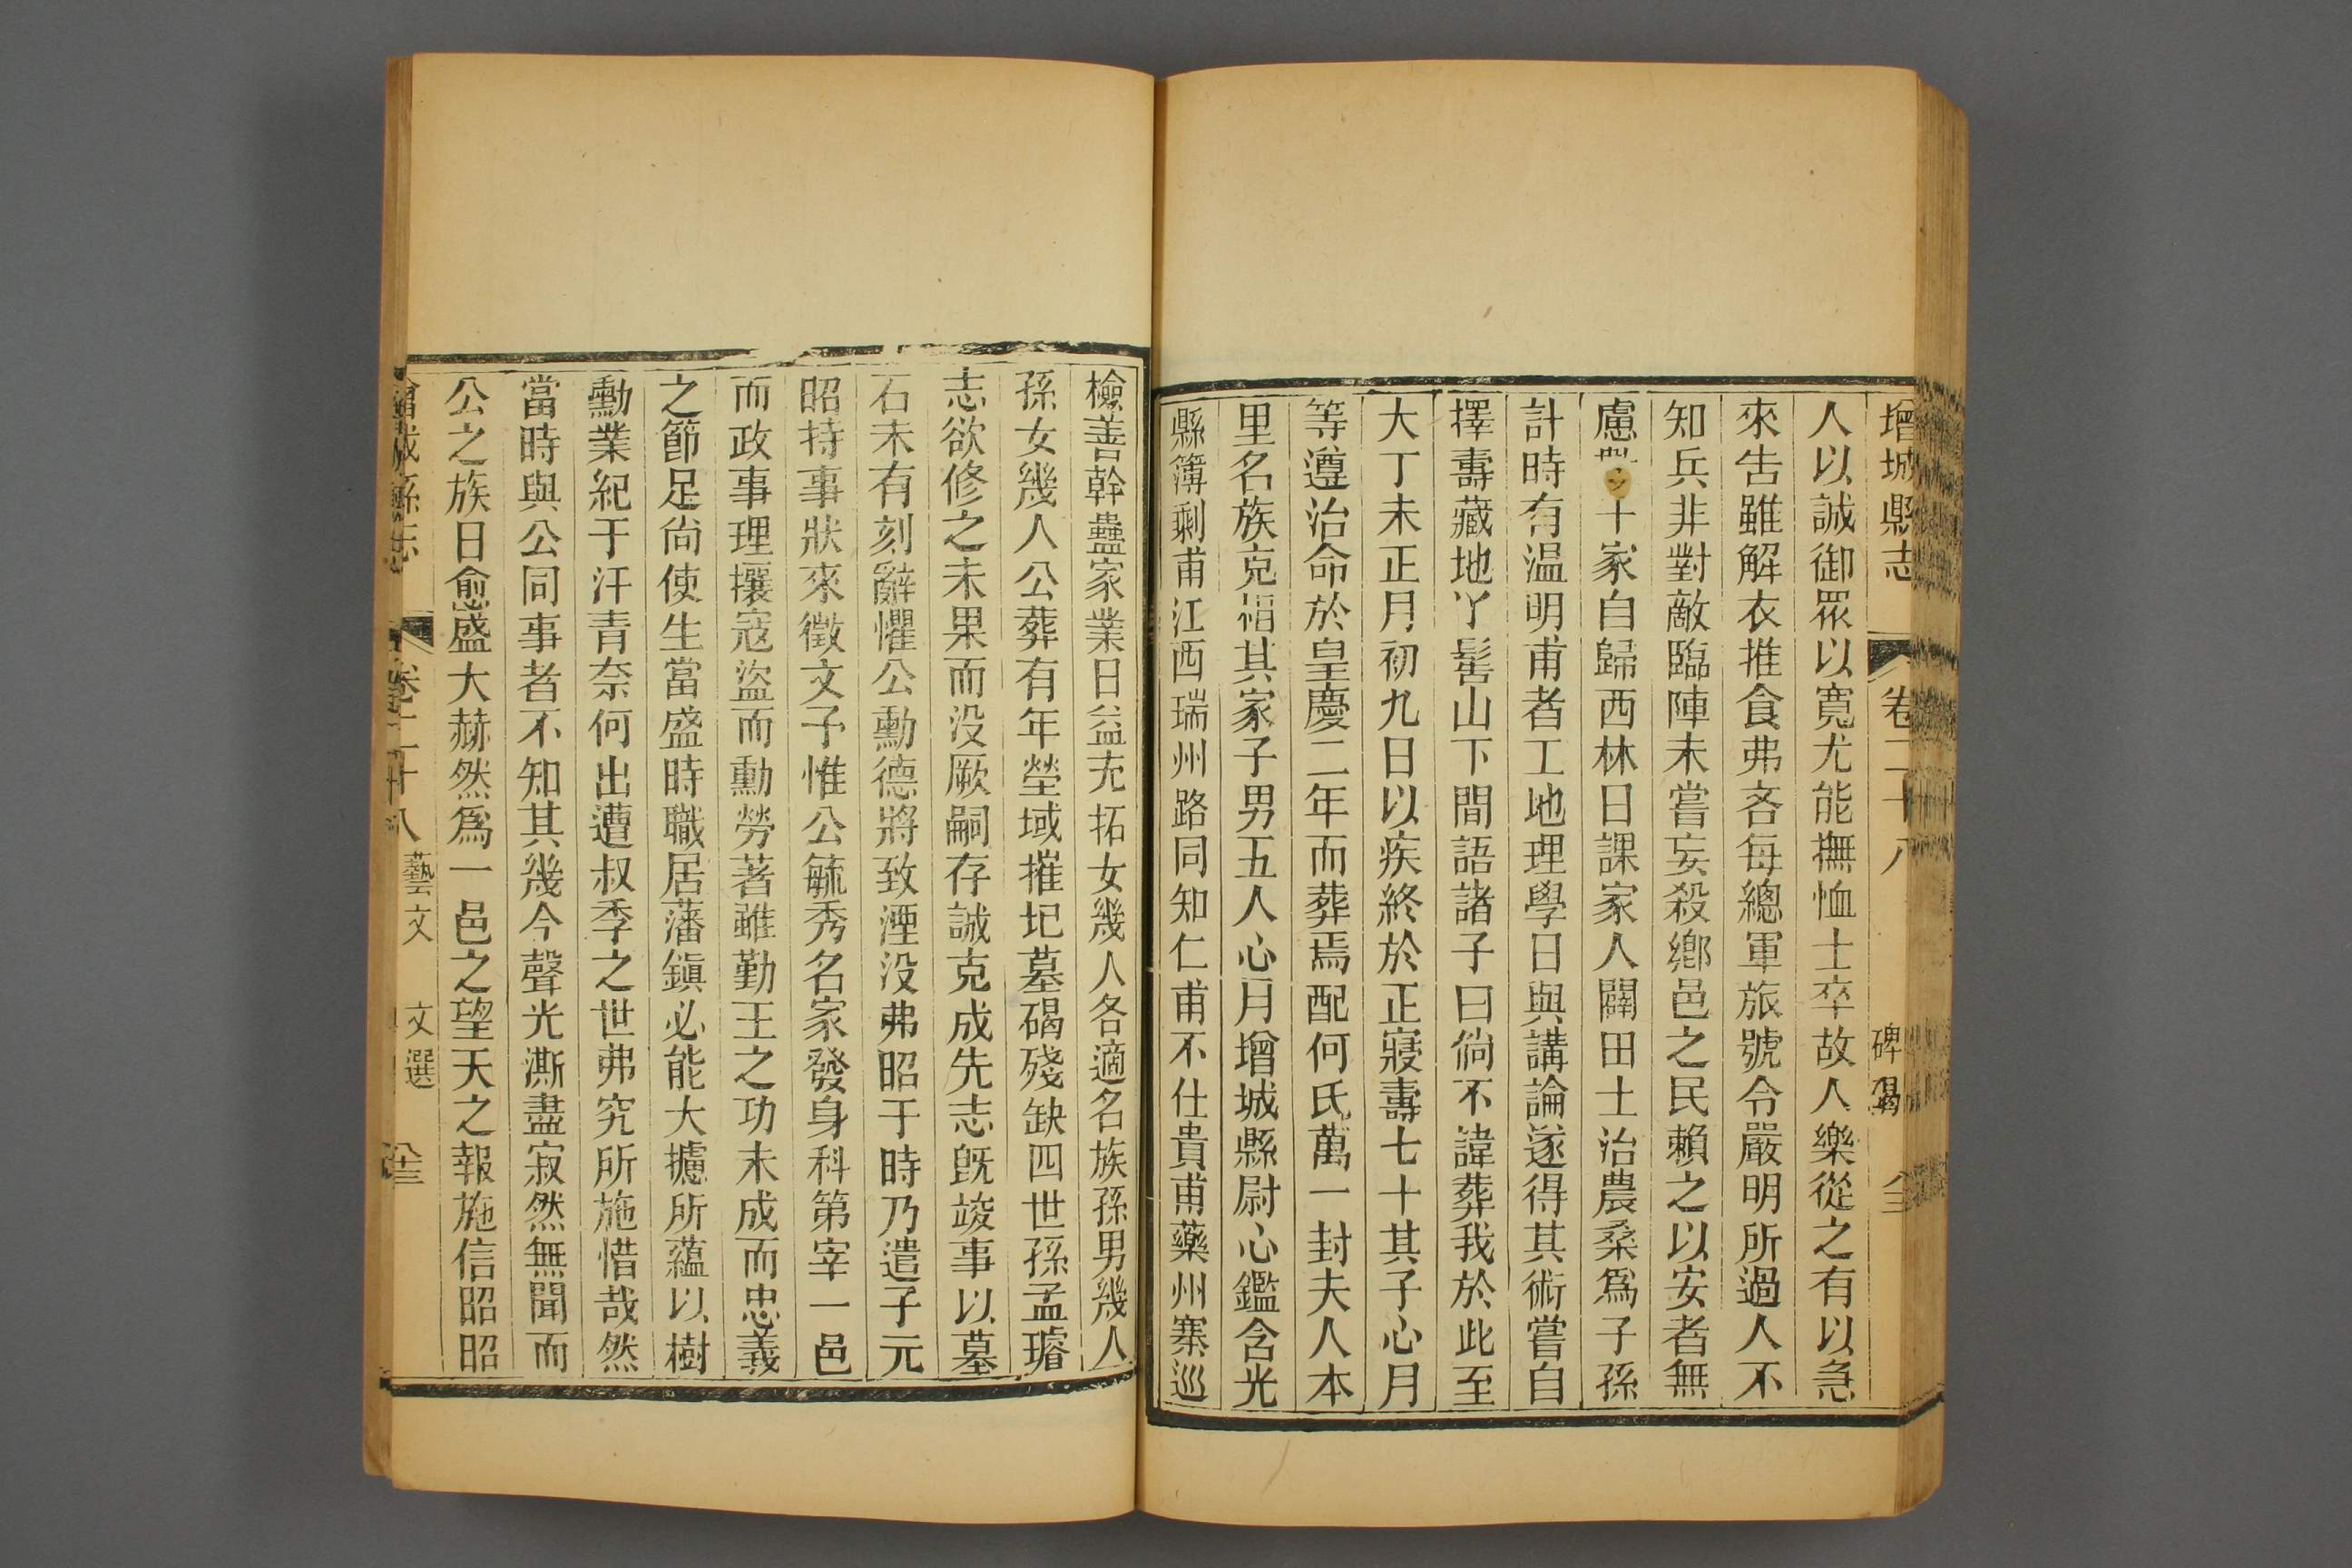 增城縣志 卷二十八 碑碣 八三
人以誠御眾以寬尤能撫恤士卒故人樂從之有以急
來告雖解衣推食弗吝每總軍旅號令嚴明所過人不
知兵非對敵臨陣未嘗妄殺鄉邑之民賴之以安者無
慮 十家自歸西林日課家人闢田土治農桑爲子孫
計時有温明甫者工地理學日與講論遂得其術嘗自
擇壽藏地丫髻山下間語諸子曰倘不諱葬我於此至
大丁未正月初九日以疾終於正寢壽七十其子心月
等遵治命於皇慶二年而葬焉配何氏萬一封夫人本
里名族克相其家子男五人心月增城縣尉心鑑含光
縣簿剩甫江西瑞州路同知仁甫不仕貴甫藥州寨巡
檢善幹蠱家業日益充拓女幾人各適名族孫男幾人
孫女幾人公葬有年塋域摧圮墓碣殘缺四世孫孟璿
志欲修之未果而没厥嗣存誠克成先志旣竣事以墓
石未有刻辭懼公勳德將致湮没弗昭于時乃遣子元
昭持事狀來徵文予惟公毓秀名家發身科第宰一邑
而政事理攘寇盜而勳勞著雖勤王之功未成而忠義
之節足尚使生當盛時職居藩鎮必能大攄所蘊以樹
勳業紀于汗青奈何出遭叔季之世弗究所施惜哉然
當時與公同事者不知其幾今聲光澌盡寂然無聞而
公之族日愈盛大赫然爲一邑之望天之報施信昭昭
增城縣志 卷二十八 藝文 文選 八三